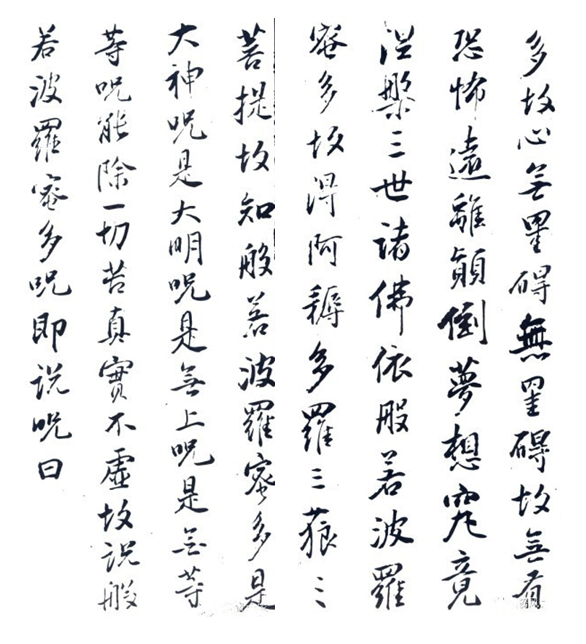 多故心無罣碍無罣碍故無有
恐怖遠離顛倒夢想究竟
涅槃三世諸佛依般若波羅
蜜多故得阿耨多羅三藐三
菩提故知般若波羅蜜多是
大神呪是大明呪是無上呪是無等
等呪能除一切苦真實不虛故說般
若波羅蜜多呪即說呪曰